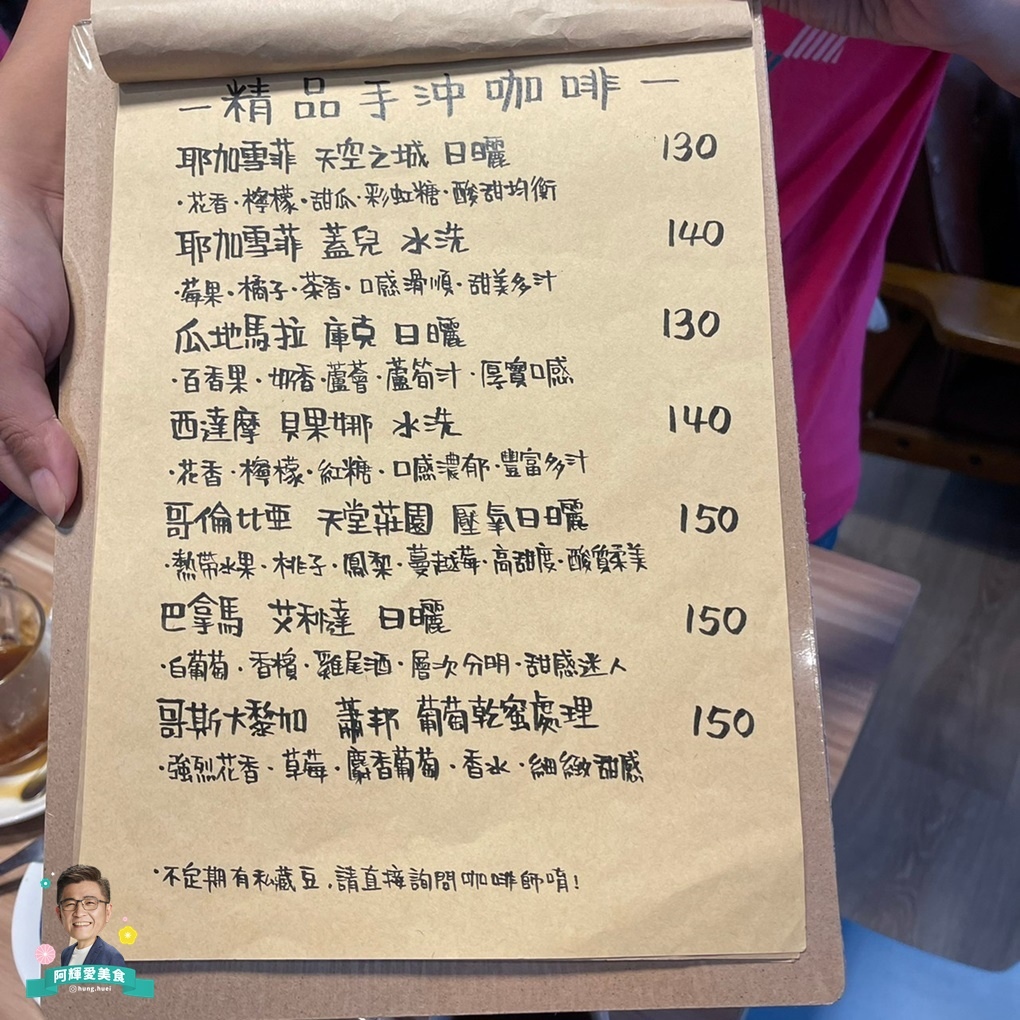 －精品手沖咖啡－
耶加雪菲 天空之城 日曬 130
·花香·檸檬·甜瓜·彩虹糖·酸甜均衡
耶加雪菲 蓋兒 水洗 140
·莓果·橘子·茶香·口感滑順·甜美多汁
瓜地馬拉 庫克 日曬 130
·百香果·奶香·蘆薈·蘆筍汁·厚實口感
西達摩 貝果娜 水洗 140
·花香·檸檬·紅糖·口感濃郁·豐富多汁
哥倫比亞 天堂莊園 壓氧日曬 150
·熱帶水果·桃子·鳳梨·蔓越莓·高甜度·酸質柔美
巴拿馬 艾利達 日曬 150
·白葡萄·香檳·雞尾酒·層次分明·甜感迷人
哥斯大黎加 蕭邦 葡萄乾蜜處理 150
·強烈花香·草莓·麝香葡萄·香水·細緻甜感
·不定期有私藏豆,請直接詢問咖啡師唷!
阿輝愛美食
hung.huei